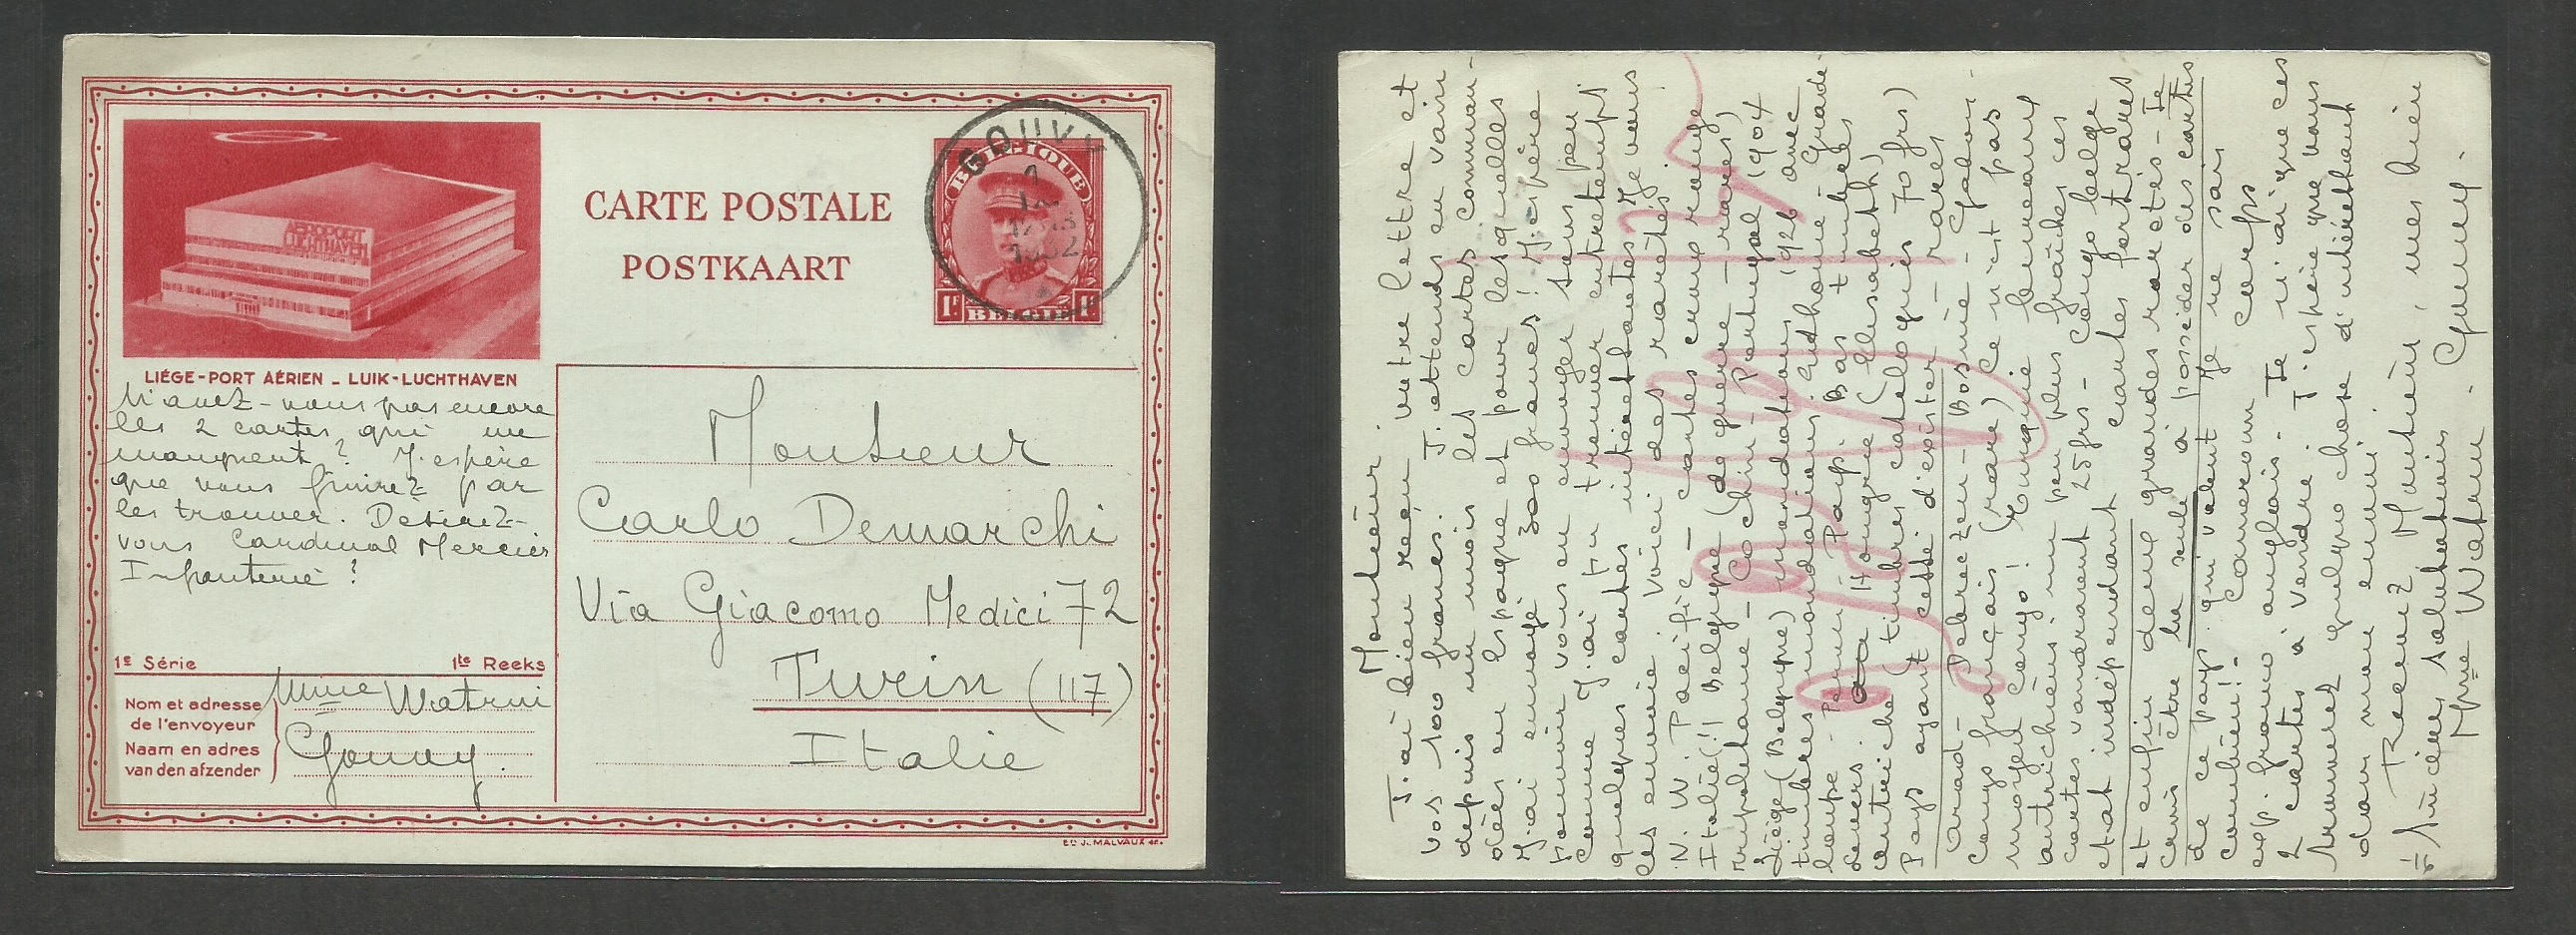 AÉROPORT
LUCHTHAVEN
LIÉGE-PORT AÉRIEN - LUIK-LUCHTHAVEN
CARTE POSTALE
POSTKAART
GOUVY
1932
BELGIQUE
1F BELGIE 1F
N'avez-vous pas encore
les 2 cartes qui me
manquent ? J'espère
que vous finirez par
les trouver. Désirez-
vous Cardinal Mercier
Infanterie ?
1e Série
1ste Reeks
Nom et adresse
de l'envoyeur
Naam en adres
van den afzender
Mme Watrin
Gouvy.
Monsieur
Carlo Demarchi
Via Giacomo Medici 72
Turin (117)
Italie
ED. J. MALVAUX
Monsieur.
J'ai bien reçu votre lettre et
vos 100 francs. J'attends en vain
depuis un mois les cartes comman-
dées en Espagne et pour lesquelles
j'ai envoyé 300 francs ! J'espère
pouvoir vous en envoyer sous peu
comme j'ai pu trouver entretemps
quelques cartes intéressantes je vous
les envoie. Voici des raretés.
N. W. Pacific - cartes croix rouge
Italie (! Belgique (de guerre - rares)
Cochin - Portugal (1904
Liége (Belgique) inondations 1926 avec
timbres inondations. Enthoune - Guade-
loupe - Pérou - Pays Bas timbres
divers. Hongrie (Elisabeth)
autriche (timbres catalogués 70 frs)
Pays ayant cessé d'exister - rares
Arad - Debreczen - Bosnie - Gabon -
Congo français (rare) Ce n'est pas
moyen Congo ! Turquie
autrichien: un peu plus fraîches ces
cartes vaudraient 25 frs - Congo belge
etat indépendant cartes fort rares
et enfin deux grandes raretés - Je
crois être la seule à posséder des cartes
de ce pays. qui valent je ne sais
combien ! - Cameroun corps
exp. franco anglais - Je n'ai que ces
2 cartes à vendre. J'espère que vous
trouverez quelque chose d'intéressant
dans mon envoi.
Recevez Monsieur, mes bien
sincères salutations
Mme Watrin. Gouvy.